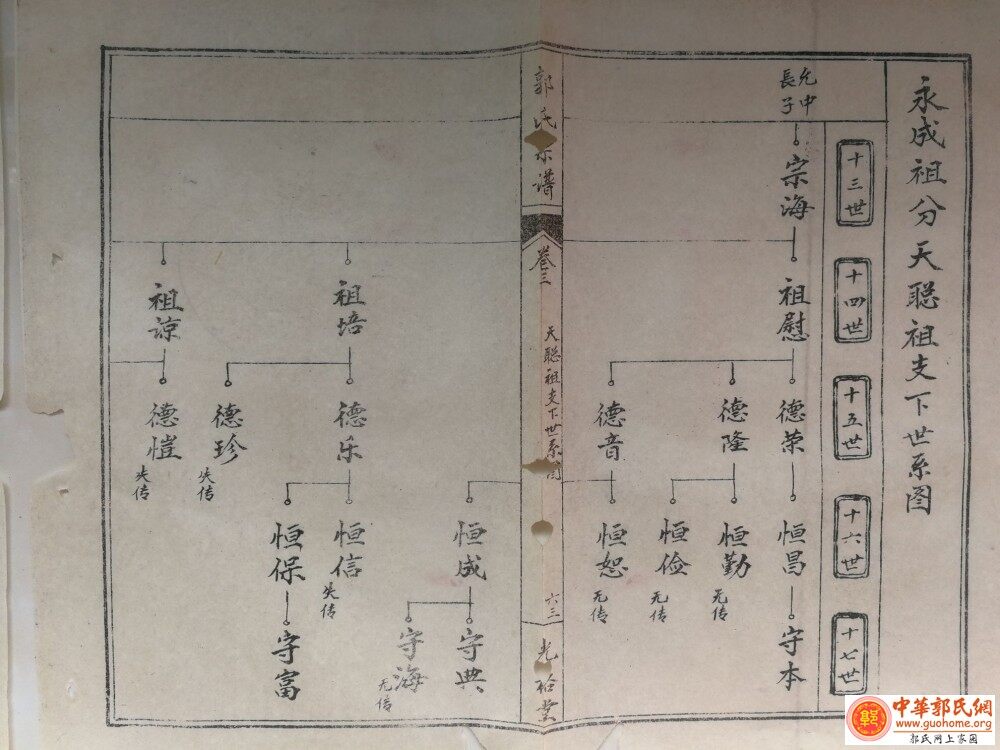 永成祖分天聪祖支下世系图
十三世
十四世
十五世
十六世
十七世
允中
長子
宗海
祖慰
德荣
德隆
德音
恒昌
恒勤
无传
恒俭
无传
恒恕
无传
守本
郭氏宗谱
卷三
天聪祖支下世系图
六三
光裕堂
祖培
祖谅
德乐
德珍
失传
德恺
失传
恒成
恒信
失传
恒保
守典
守海
无传
守富
中華郭氏網
www.guohome.org
郭氏网上家园